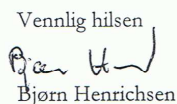 Vennlig hilsen
Bjørn Henrichsen